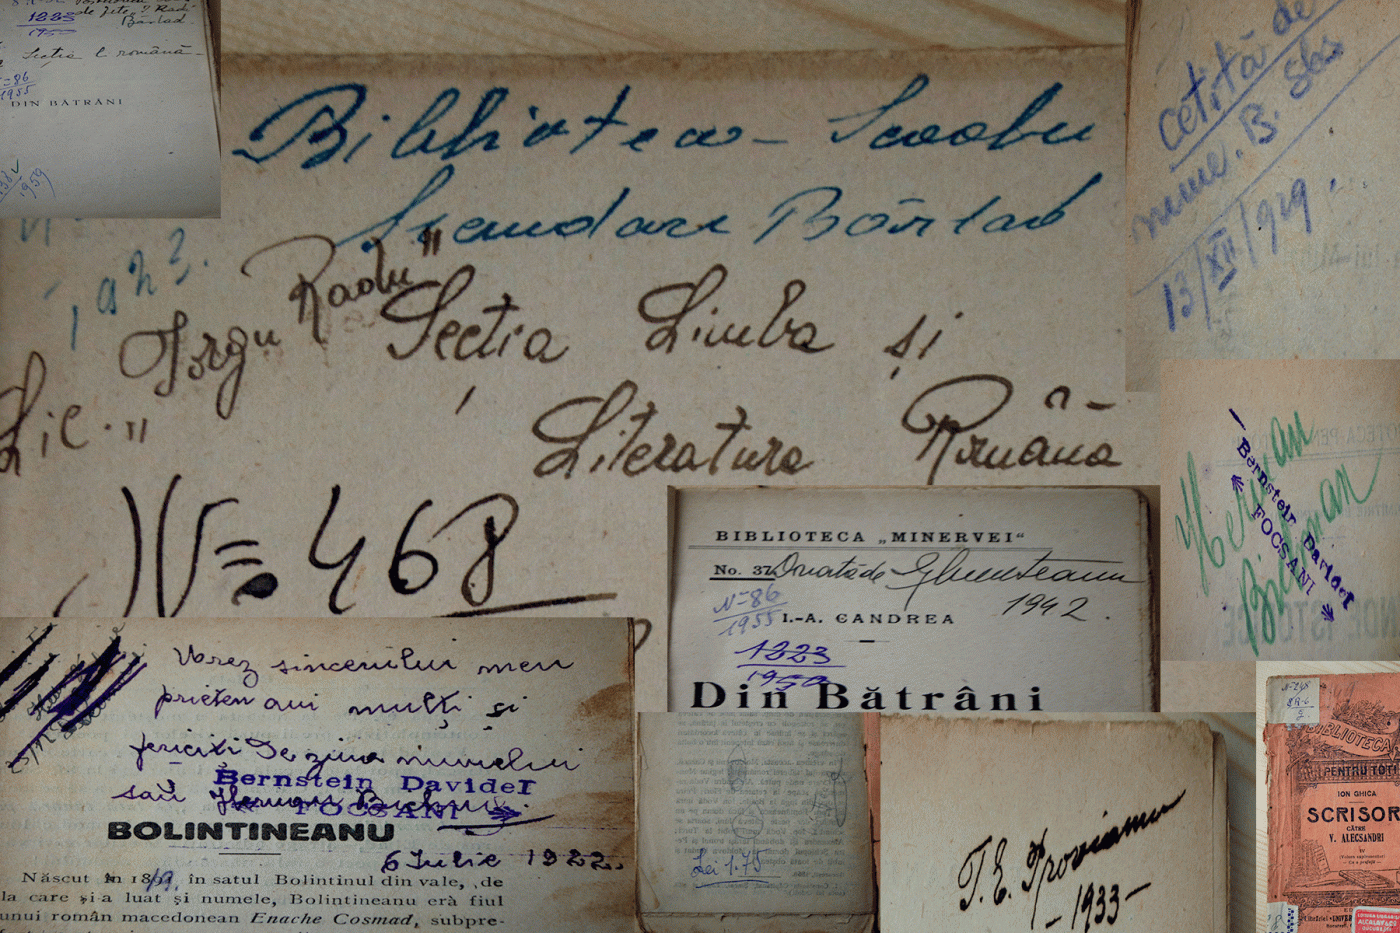 1223
1955
Bârlad.
Secția L română
N=86
1955
DIN BĂTRÂNI
1959
Biblioteca Scoalei
Secundare Bârlad
1923.
Lic. „Iorgu Radu"
Secția Limba și
Literatura Română
N= 468
cetită de
mine. B. Sbs
13/XII/929
Herman
Buchman
Bernstein Davidel
FOCSANI
BIBLIOTECA „MINERVEI"
No. 37
Donată de Gh Munteanu
1942.
N=86
1955
I.-A. CANDREA
1223
1950
Din Bătrâni
Urez sincerului meu
prieten ani mulți și
fericiți de ziua numelui
său Herman Buchman
Bernstein Davidel
FOCSANI
BOLINTINEANU
6 Iulie 1922.
Născut în 1819, în satul Bolintinul din vale, de
la care și-a luat și numele, Bolintineanu eră fiul
unui român macedonean Enache Cosmad, subpre-
Lei 1.75
T. E. Trovianu
- 1933 -
N-248
BIBLIOTECA
PENTRU TOȚI
ION GHICA
SCRISOR
CĂTRE
V. ALECSANDRI
IV